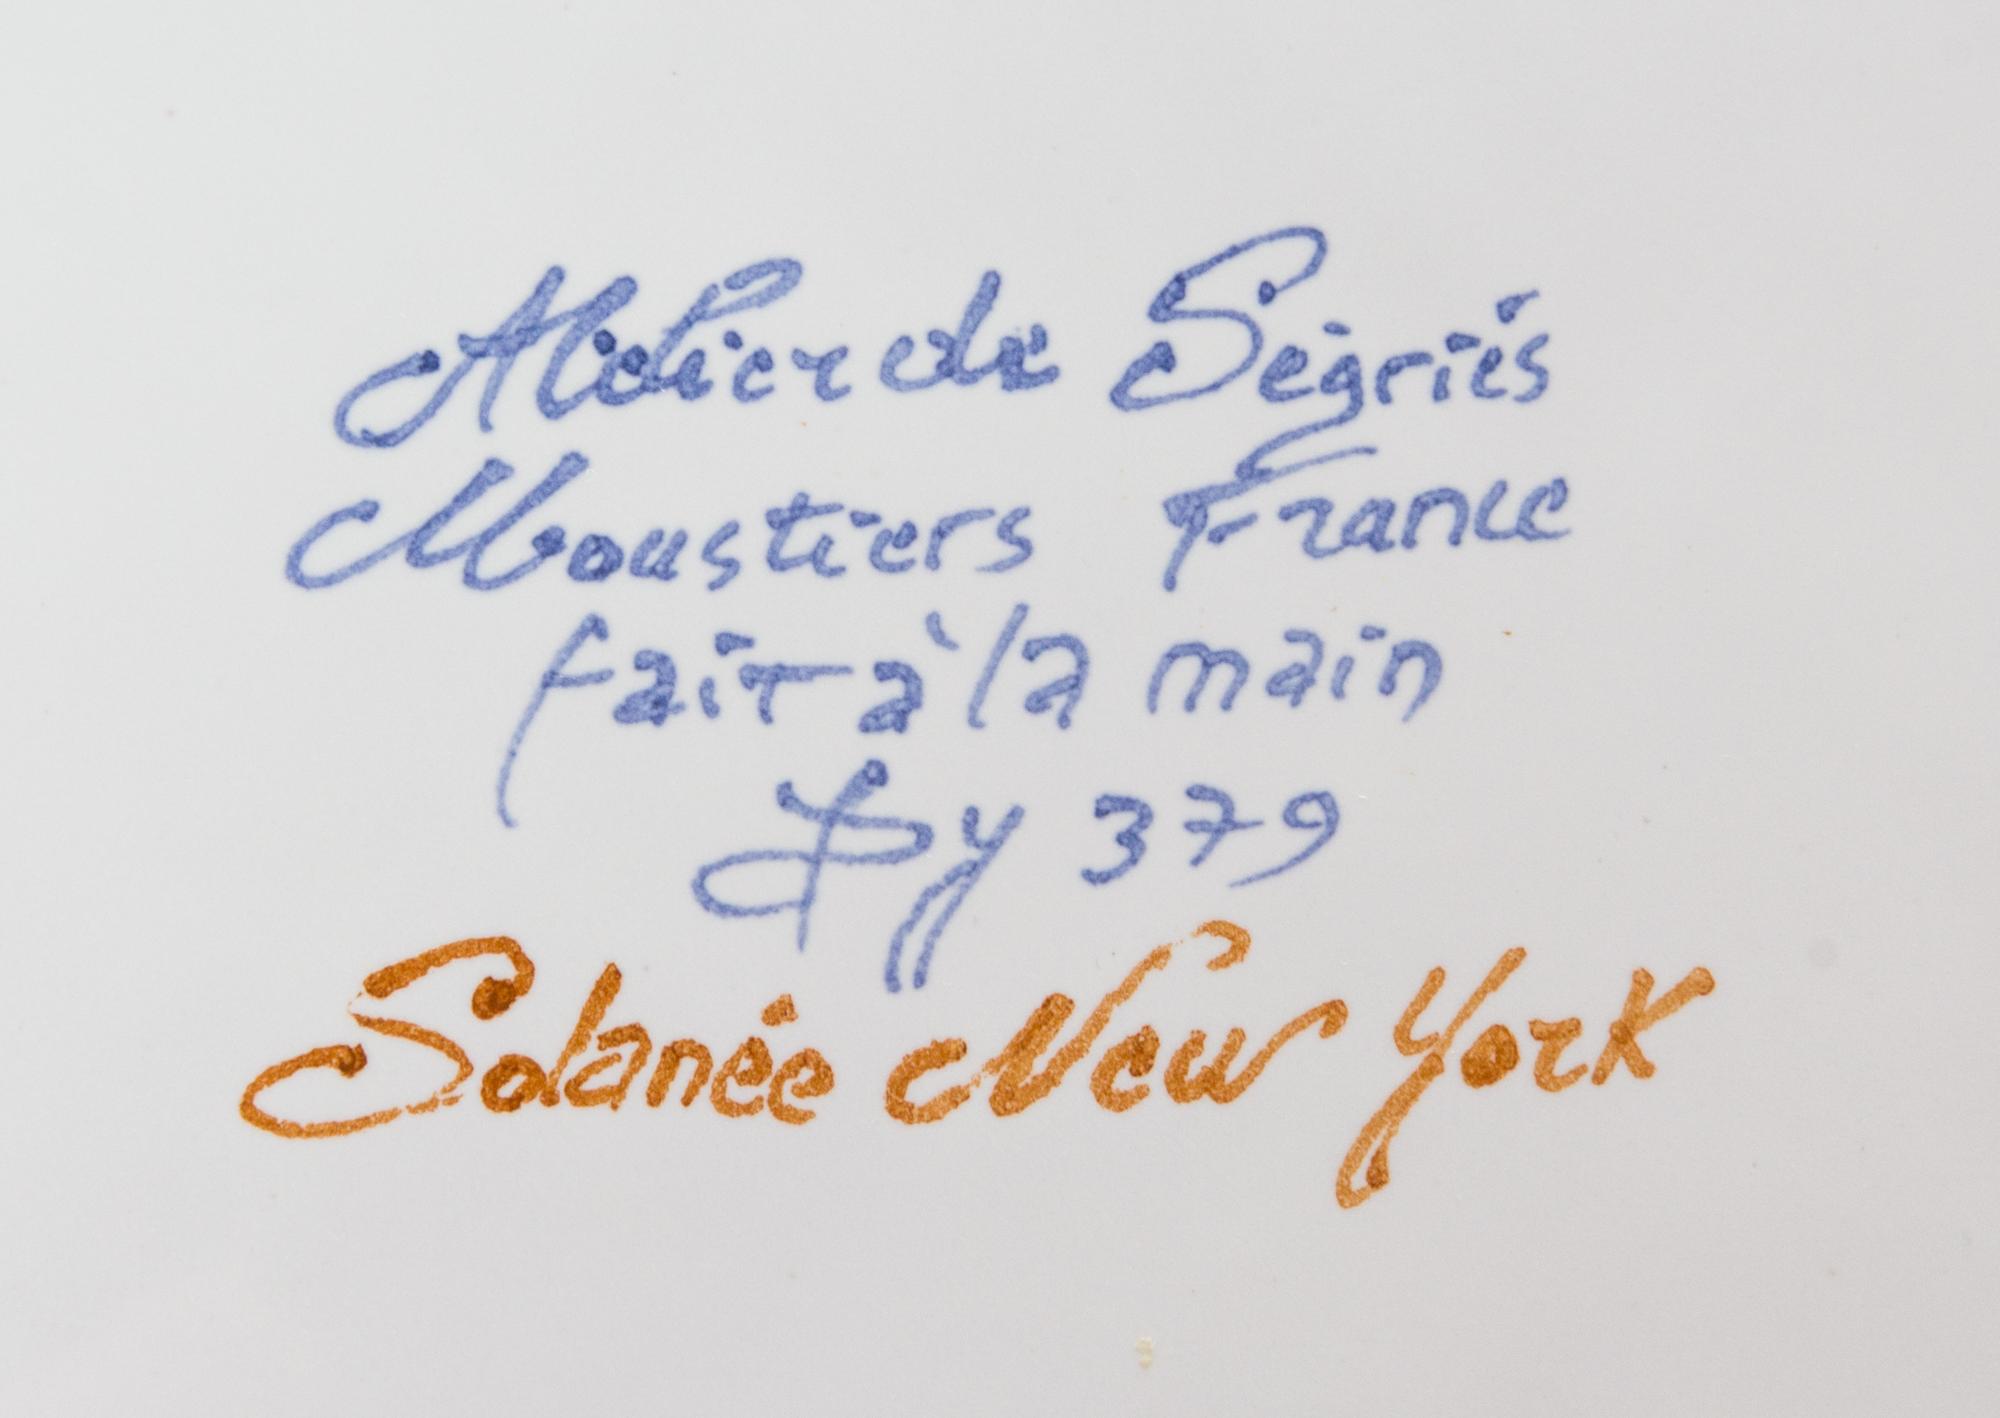 Atelier de Ségriés
Moustiers France
fait à la main
y 379
Solanée New York